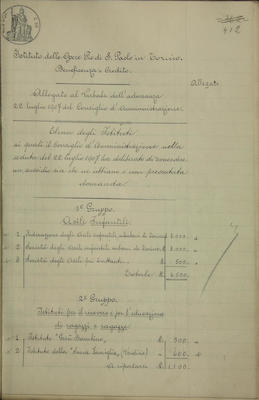 412
Istituto delle Opere Pie di S. Paolo in Torino.
Beneficenza e Credito.
Allegato
Allegato al Verbale dell'adunanza
22 luglio 1907 del Consiglio d'Amministrazione.
Elenco degli Istituti
ai quali il Consiglio d'Amministrazione nella
seduta del 22 luglio 1907 ha deliberato di concedere
un sussidio sia che ne abbiano o non presentata
domanda
1° Gruppo.
Asili Infantili.
1 Federazione degli Asili infantili suburbani di Torino L. 3.000. "
2 Società degli Asili infantili urbani di Torino L. 3.000. "
3 Società degli Asili pei lattanti L. 500. "
Totale L. 6.500
2° Gruppo.
Istituti pel ricovero e per l'educazione
di ragazzi e ragazze
1 Istituto "Gesù Bambino, L. 500. "
2 Istituto della "Sacra Famiglia, L. 600. "
A riportarsi L. 1.100.